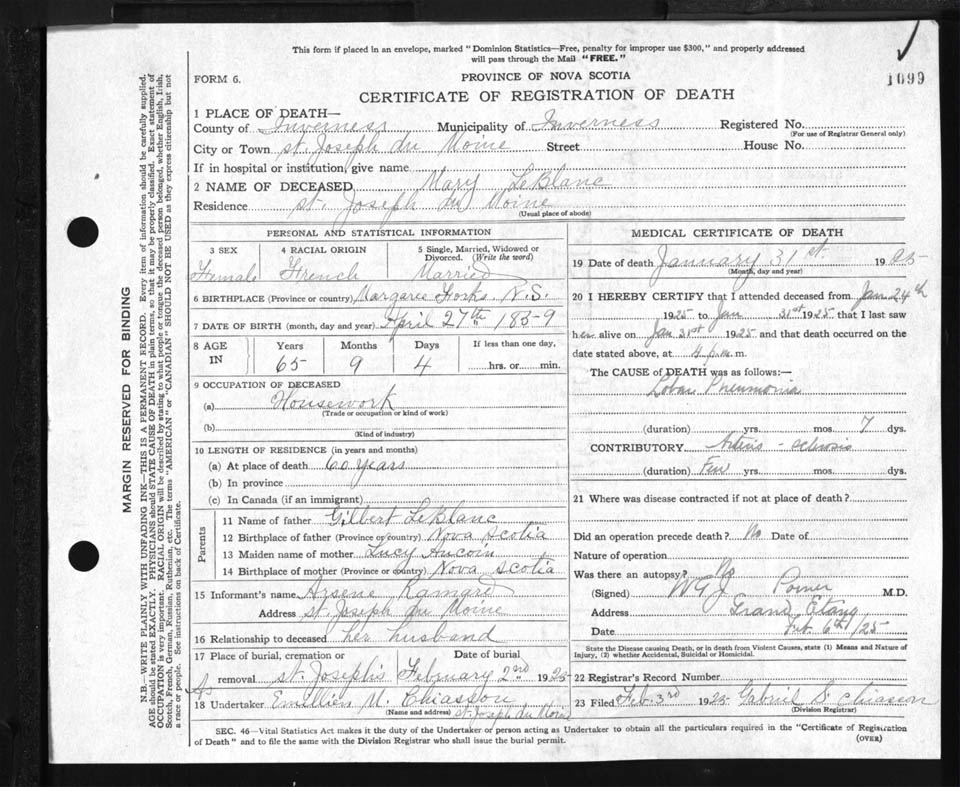 This form if placed in an envelope, marked "Dominion Statistics—Free, penalty for improper use $300," and properly addressed
will pass through the Mail "FREE."
FORM 6.
PROVINCE OF NOVA SCOTIA
1099
CERTIFICATE OF REGISTRATION OF DEATH
1 PLACE OF DEATH—
County of Inverness Municipality of Inverness Registered No.
(For use of Registrar General only)
City or Town St. Joseph du Moine Street House No.
If in hospital or institution, give name
2 NAME OF DECEASED Mary LeBlanc
Residence St. Joseph du Moine
(Usual place of abode)
PERSONAL AND STATISTICAL INFORMATION
3 SEX 4 RACIAL ORIGIN 5 Single, Married, Widowed or
Divorced. (Write the word)
Female French Married
6 BIRTHPLACE (Province or country) Margaree Forks N.S.
7 DATE OF BIRTH (month, day and year) April 27th 1859
8 AGE IN Years Months Days If less than one day,
65 9 4 hrs. or min.
9 OCCUPATION OF DECEASED
(a) Housework
(Trade or occupation or kind of work)
(b)
(Kind of industry)
10 LENGTH OF RESIDENCE (in years and months)
(a) At place of death 60 years
(b) In province
(c) In Canada (if an immigrant)
Parents
11 Name of father Gilbert LeBlanc
12 Birthplace of father (Province or country) Nova Scotia
13 Maiden name of mother Lucy Aucoin
14 Birthplace of mother (Province or country) Nova Scotia
15 Informant's name Arsene
Address St. Joseph du Moine
16 Relationship to deceased her husband
17 Place of burial, cremation or Date of burial
removal St. Joseph's February 2nd 1925
As
18 Undertaker Emillien M. Chiasson
(Name and address) St. Joseph du Moine
MEDICAL CERTIFICATE OF DEATH
19 Date of death January 31st 1925
(Month, day and year)
20 I HEREBY CERTIFY that I attended deceased from Jan 24th
1925 to Jan 31st 1925 that I last saw
her alive on Jan 31st 1925 and that death occurred on the
date stated above, at 4 p.m. m.
The CAUSE OF DEATH was as follows:—
Lobar Pneumonia
(duration) yrs. mos. 7 dys.
CONTRIBUTORY Arterio-sclerosis
(duration) Few yrs. mos. dys.
21 Where was disease contracted if not at place of death?
Did an operation precede death? No Date of
Nature of operation
Was there an autopsy? No
(Signed) M.D.
Address Grand Etang
Date Feb. 6th/25
State the Disease causing Death, or in death from Violent Causes, state (1) Means and Nature of
Injury, (2) whether Accidental, Suicidal or Homicidal.
22 Registrar's Record Number
23 Filed Feb. 3rd 1925 Gabriel S. Chiasson
(Division Registrar)
SEC. 46—Vital Statistics Act makes it the duty of the Undertaker or person acting as Undertaker to obtain all the particulars required in the "Certificate of Registration
of Death" and to file the same with the Division Registrar who shall issue the burial permit.
(OVER)
MARGIN RESERVED FOR BINDING
N.B.—WRITE PLAINLY WITH UNFADING INK—THIS IS A PERMANENT RECORD. Every item of information should be carefully supplied.
AGE should be stated EXACTLY. PHYSICIANS should STATE CAUSE OF DEATH in plain terms, so that it may be properly classified. Exact statement of
OCCUPATION is very important. RACIAL ORIGIN will be described by stating to what people or tongue the deceased person belonged, whether English, Irish,
Scotch, French, German, Russian, Ruthenian, etc. The terms "AMERICAN" or "CANADIAN" SHOULD NOT BE USED as they express citizenship but not
a race or people. See instructions on back of Certificate.